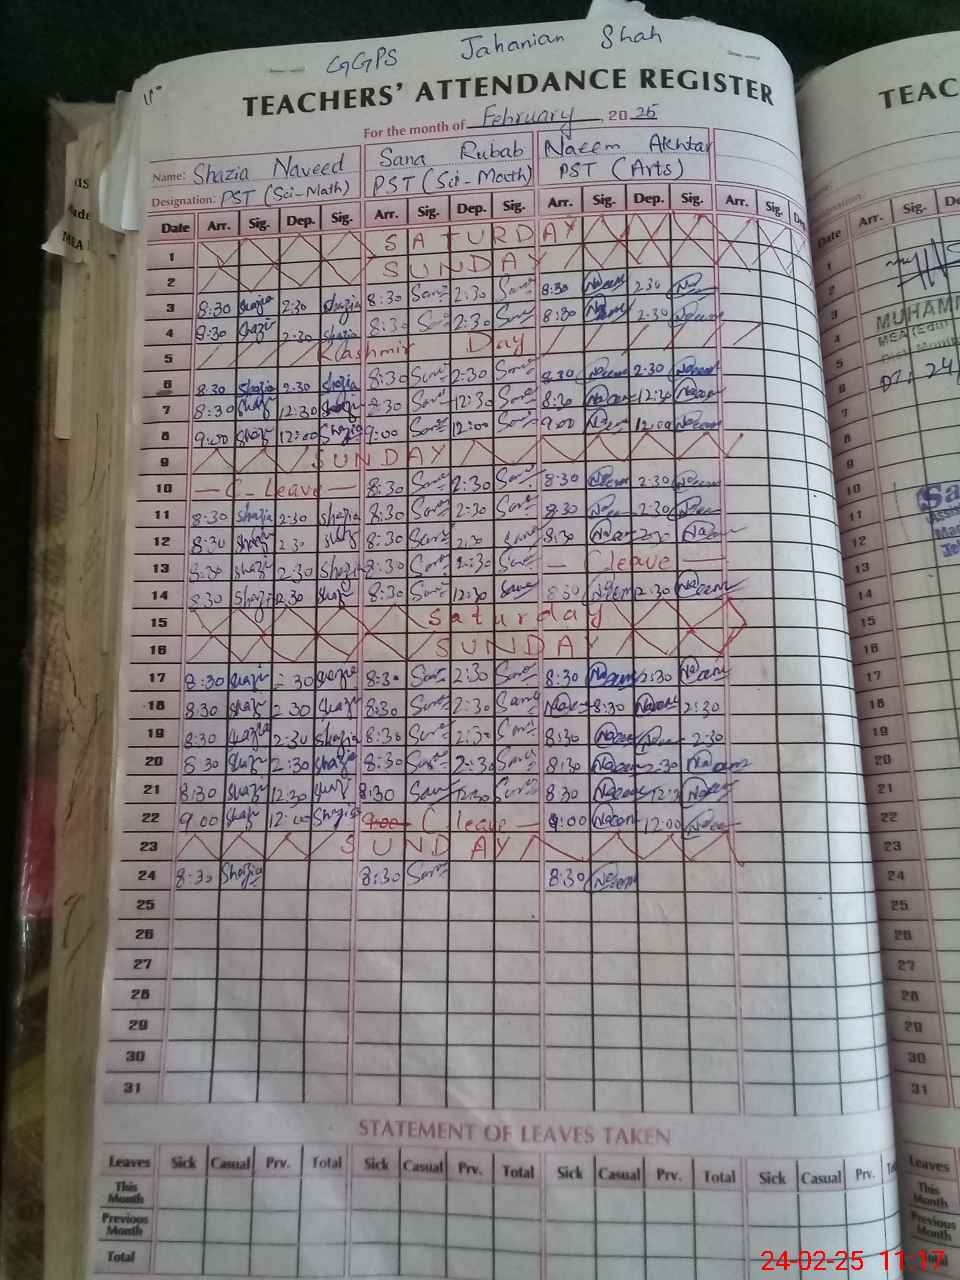 GGPS Jahanian Shah
TEACHERS' ATTENDANCE REGISTER
For the month of February, 2025
Name: Shazia Naveed Sana Rubab Naeem Akhtar
Designation: PST (Sci-Math) PST (Sci-Math) PST (Arts)
Date Arr. Sig. Dep. Sig. Arr. Sig. Dep. Sig. Arr. Sig. Dep. Sig. Arr. Sig.
1 SATURDAY
2 SUNDAY
3 8:30 Shazia 2:30 Shazia 8:30 Sana 2:30 Sana 8:30 Naeem 2:30
4 8:30 Shazia 2:30 Shazia 8:30 Sana 2:30 Sana 8:30 Naeem 2:30 Naeem
5 Kashmir Day
6 8:30 Shazia 2:30 Shazia 8:30 Sana 2:30 Sana 8:30 Naeem 2:30 Naeem
7 8:30 Shazia 12:30 Shazia 8:30 Sana 12:30 Sana 8:30 Naeem 12:30 Naeem
8 9:00 Shazia 12:00 Shazia 9:00 Sana 12:00 Sana 9:00 Naeem 12:00 Naeem
9 SUNDAY
10 — C-Leave — 8:30 Sana 2:30 Sana 8:30 Naeem 2:30 Naeem
11 8:30 Shazia 2:30 Shazia 8:30 Sana 2:30 Sana 8:30 Naeem 2:30 Naeem
12 8:30 Shazia 2:30 Shazia 8:30 Sana 2:30 Sana 8:30 Naeem 2:30 Naeem
13 8:30 Shazia 2:30 Shazia 8:30 Sana 2:30 Sana — C leave —
14 8:30 Shazia 12:30 Shazia 8:30 Sana 12:30 Sana 8:30 Naeem 12:30 Naeem
15 Saturday
16 SUNDAY
17 8:30 Shazia 2:30 Shazia 8:30 Sana 2:30 Sana 8:30 Naeem 2:30 Naeem
18 8:30 Shazia 2:30 Shazia 8:30 Sana 2:30 Sana Naeem 8:30 Naeem 2:30
19 8:30 Shazia 2:30 Shazia 8:30 Sana 2:30 Sana 8:30 Naeem Naeem 2:30
20 8:30 Shazia 2:30 Shazia 8:30 Sana 2:30 Sana 8:30 Naeem 2:30 Naeem
21 8:30 Shazia 12:30 Shazia 8:30 Sana 12:30 Sana 8:30 Naeem 12:30 Naeem
22 9:00 Shazia 12:00 Shazia 9:00 C leave — 9:00 Naeem 12:00 Naeem
23 SUNDAY
24 8:30 Shazia 8:30 Sana 8:30 Naeem
25
26
27
28
29
30
31
STATEMENT OF LEAVES TAKEN
Leaves Sick Casual Prv. Total Sick Casual Prv. Total Sick Casual Prv. Total Sick Casual Prv.
This Month
Previous Month
Total
TEAC
Date Arr. Sig.
1
2
3
4
5
6
7
8
9
10
11
12
13
14
15
16
17
18
19
20
21
22
23
24
25
26
27
28
29
30
31
MUHAMM
MEA (Edu
Leaves
This Month
Previous Month
Total
24-02-25 11:17